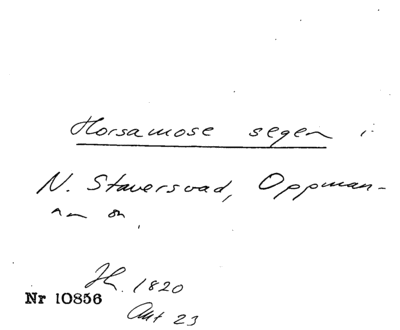 Horsamose segen i
N. Staversvad, Oppman-
na sn.
1820
Nr 10856
Akt 23